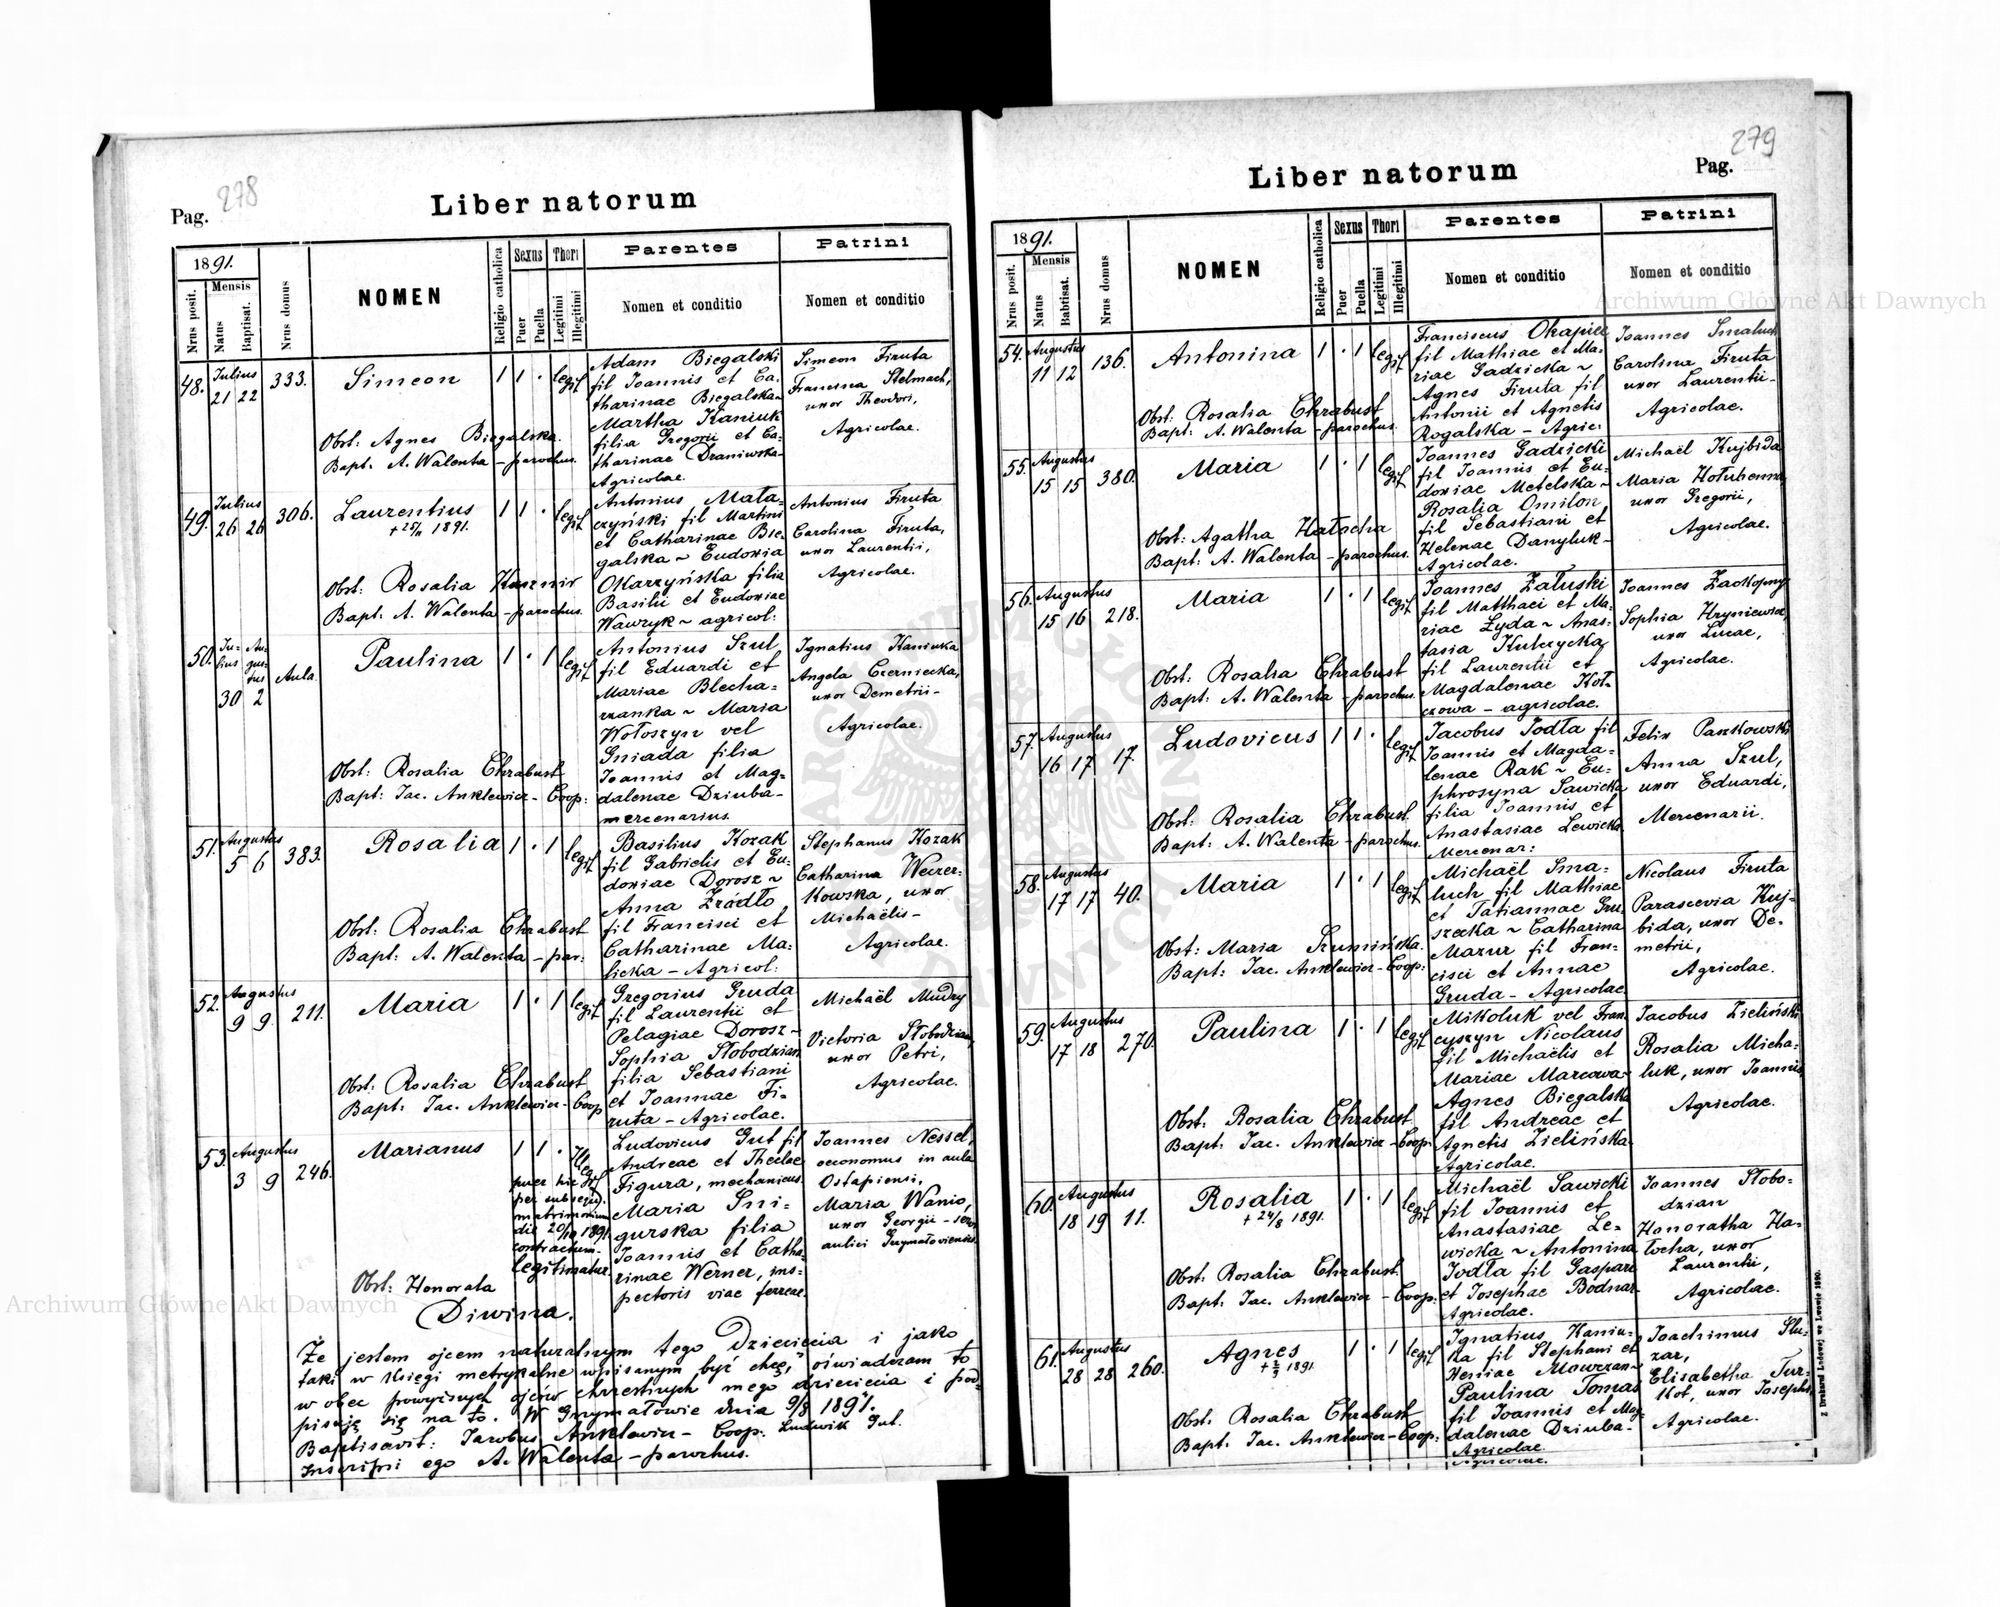 Pag. 278
Liber natorum
1891.
Mensis
Nrus posit.
Natus
Baptisat.
Nrus domus
NOMEN
Religio catholica
Sexus
Puer
Puella
Thori
Legitimi
Illegitimi
Parentes
Nomen et conditio
Patrini
Nomen et conditio
48. Julius 21 22 333. Simeon 1 1 . legit
Obst: Agnes Biegalska.
Bapt: A. Walenta – parochus.
Adam Biegalski
fil Joannis et Ca-
tharinae Biegalska ~
Martha Kaniuk
filia Gregorii et Ca-
tharinae Draniwska-
Agricolae.
Simeon Firuta
Francisca Stelmach,
uxor Theodori,
Agricolae.
49. Julius 26 26 306. Laurentius 1 1 . legit
1891.
Obst: Rosalia Kuszmir
Bapt: A. Walenta – parochus.
Antonius Mała-
czyński fil Martini
et Catharinae Bie-
galska ~ Eudoxia
Okarzyńska filia
Basilii et Eudoxiae
Wawryk ~ agricol:
Antonius Firuta
Carolina Firuta,
uxor Laurentii,
Agricolae.
50. Ju- Au-
lius gus-
tus
30 2 Aula Paulina 1 . 1 legit
Obst: Rosalia Chrabust
Bapt: Jac. Anklewicz – Coop:
Antonius Szul
fil Eduardi et
Mariae Blecha-
rzanka ~ Maria
Wołoszyn vel
Gniada filia
Joannis et Mag-
dalenae Dziuba-
mercenarius.
Ignatius Kaniuka
Angela Czerniecka,
uxor Demetrii –
Agricolae.
51. Augustus 5 6 383. Rosalia 1 . 1 legit
Obst: Rosalia Chrabust
Bapt: A. Walenta – par:
Basilius Kozak
fil Gabrielis et Eu-
doxiae Dorosz ~
Anna Źródło
fil Francisci et
Catharinae Ma-
licka – Agricol:
Stephanus Kozak
Catharina Wieczer-
kowska, uxor
Michaëlis –
Agricolae.
52. Augustus 9 9. 211. Maria 1 . 1 legit
Obst: Rosalia Chrabust
Bapt: Jac. Anklewicz – Coop
Gregorius Gruda
fil Laurentii et
Pelagiae Dorosz –
Sophia Słobodzian
filia Sebastiani
et Joannae Fi-
ruta – Agricolae.
Michaël Mudry
Victoria Słobodzian,
uxor Petri,
Agricolae.
53. Augustus 3 9 246. Marianus 1 1 . Illegit
puer hic
per subsequ.
matrimonium
die 20/10 1891
contractum
legitimatur.
Obst: Honorata
Diwina.
Ludovicus Gut fil
Andreae et Theclae
Figura, mechanicus
Maria Sni-
gurska filia
Joannis et Catha-
rinae Werner, ins-
pectoris viae ferreae.
Joannes Nessel,
oeconomus in aula
Ostapiensi,
Maria Wanio,
uxor Georgii –
aulici Grzymałoviensis
Że jestem ojcem naturalnym tego Dziecięcia i jako
taki w księgi metrykalne wpisanym być chcę, oświadczam to
w obec powyższych ojców chrzestnych mego dziecięcia i pod-
pisuję się na to. W Grzymałowie dnia 9/8 1891.
Baptisavit: Jacobus Anklewicz – Coop: Ludwik Gut.
Inscripsi ego A. Walenta – parochus.
Pag. 279
Liber natorum
1891.
Mensis
Nrus posit.
Natus
Babtisat.
Nrus domus
NOMEN
Religio catholica
Sexus
Puer
Puella
Thori
Legitimi
Illegitimi
Parentes
Nomen et conditio
Patrini
Nomen et conditio
54. Augustus 11 12 136. Antonina 1 . 1 legit
Obst: Rosalia Chrabust
Bapt: A. Walenta – parochus.
Franciscus Okapiec
fil Mathiae et Ma-
riae Gadzicka ~
Agnes Firuta fil
Antonii et Agnetis
Rogalska – Agric:
Joannes Smaluch
Carolina Firuta
uxor Laurentii –
Agricolae.
55. Augustus 15 15 380. Maria 1 . 1 legit
Obst: Agatha Hałocha
Bapt: A. Walenta – parochus.
Joannes Gadzicki
fil Joannis et Eu-
doxiae Metelska ~
Rosalia Omilon
fil Sebastiani et
Helenae Danyluk –
Agricolae.
Michaël Kujbida
Maria Hołubenna
uxor Gregorii,
Agricolae.
56. Augustus 15 16 218. Maria 1 . 1 legit
Obst: Rosalia Chrabust
Bapt: A. Walenta – parochus.
Joannes Załuski
fil Matthaei et Ma-
riae Żyda ~ Anas-
tasia Kulczycka
fil Laurentii et
Magdalenae Koł-
czowa – agricolae.
Joannes Zackopny
Sophia Hryniewicz,
uxor Lucae,
Agricolae.
57. Augustus 16 17 17. Ludovicus 1 1 . legit
Obst: Rosalia Chrabust
Bapt: A. Walenta – parochus.
Jacobus Jodła fil
Joannis et Magda-
lenae Rak ~ Eu-
phrosyna Sawicka
filia Joannis et
Anastasiae Lewicka
Mercenar:
Felix Paszkowski
Anna Szul,
uxor Eduardi,
Mercenarii.
58. Augustus 17 17 40. Maria 1 . 1 legit
Obst: Maria Szumińska.
Bapt: Jac. Anklewicz – Coop:
Michaël Sma-
luch fil Mathiae
et Tatiannae Gru-
szecka ~ Catharina
Mazur fil Fran-
cisci et Annae
Gruda – Agricolae
Nicolaus Firuta
Parascevia Kuj-
bida, uxor De-
metrii,
Agricolae.
59. Augustus 17 18 270. Paulina 1 . 1 legit
Obst: Rosalia Chrabust
Bapt: Jac. Anklewicz – Coop:
Mikoluk vel Fran-
cyszyn Nicolaus
fil Michaëlis et
Mariae Marcowa-
Agnes Biegalska
fil Andreae et
Agnetis Zielińska
Agricolae.
Jacobus Zieliński
Rosalia Micha-
luk, uxor Joannis
Agricolae.
60. Augustus 18 19 11. Rosalia 1 . 1 legit
+ 24/8 1891.
Obst: Rosalia Chrabust
Bapt: Jac. Anklewicz – Coop:
Michaël Sawicki
fil Joannis et
Anastasiae Le-
wicka ~ Antonina
Jodła fil Gaspari
et Josephae Bodnar
Agricolae.
Joannes Słobo-
dzian
Honoratha Ha-
łocha, uxor
Laurentii,
Agricolae.
61. Augustus 28 28 260. Agnes 1 . 1 legit
1891
Obst: Rosalia Chrabust
Bapt: Jac. Anklewicz – Coop:
Ignatius Kaniu-
ka fil Stephani et
Xeniae Mowczan ~
Paulina Tomas
fil Joannis et Mag-
dalenae Dziuba –
Agricolae.
Joachimus Slu-
zar,
Elisabetha Tur-
kot, uxor Josephi,
Agricolae.
Z Drukarni Ludowej we Lwowie 1890.
Archiwum Główne Akt Dawnych
Archiwum Główne Akt Dawnych
ARCHIWUM GŁÓWNE AKT DAWNYCH